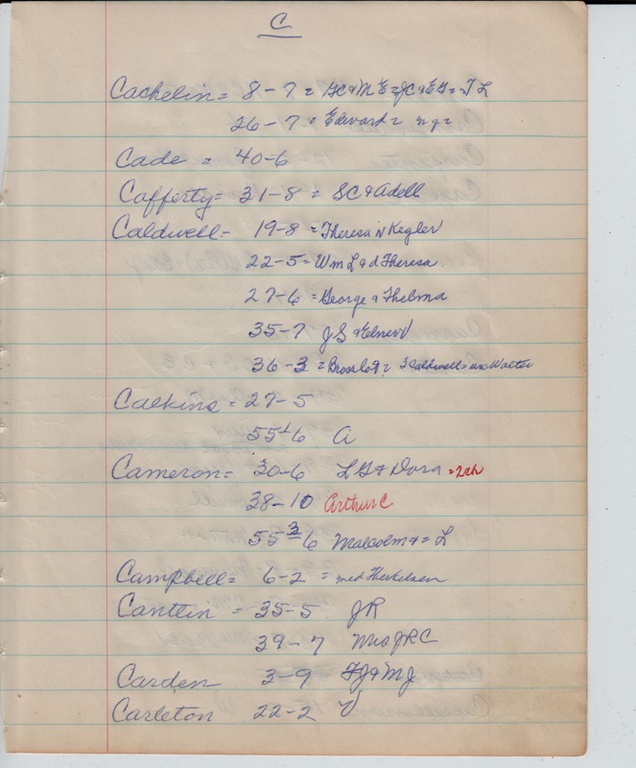 C
Cachelin = 8-7 = GC & ME = JC & EG = T L
26-7 = Edward =
Cade = 40-6
Cafferty = 31-8 = SC & Adell
Caldwell - 19-8 = Theresa in Kegler
22-5 = Wm L & d Theresa
27-6 = George & Thelma
35-7 JS &
36-3 = = 3 Caldwell = Walter
Calkins = 27-5
55-6 A
Cameron = 30-6 L G & Dora = 2ch
38-10 Arthur C
55 3-6 Malcolm & = L
Campbell = 6-2 = Therkelsen
Cantein - 35-5 JR
39-7 Mrs JRC
Carden 3-9 FJ & MJ
Carleton 22-2 V